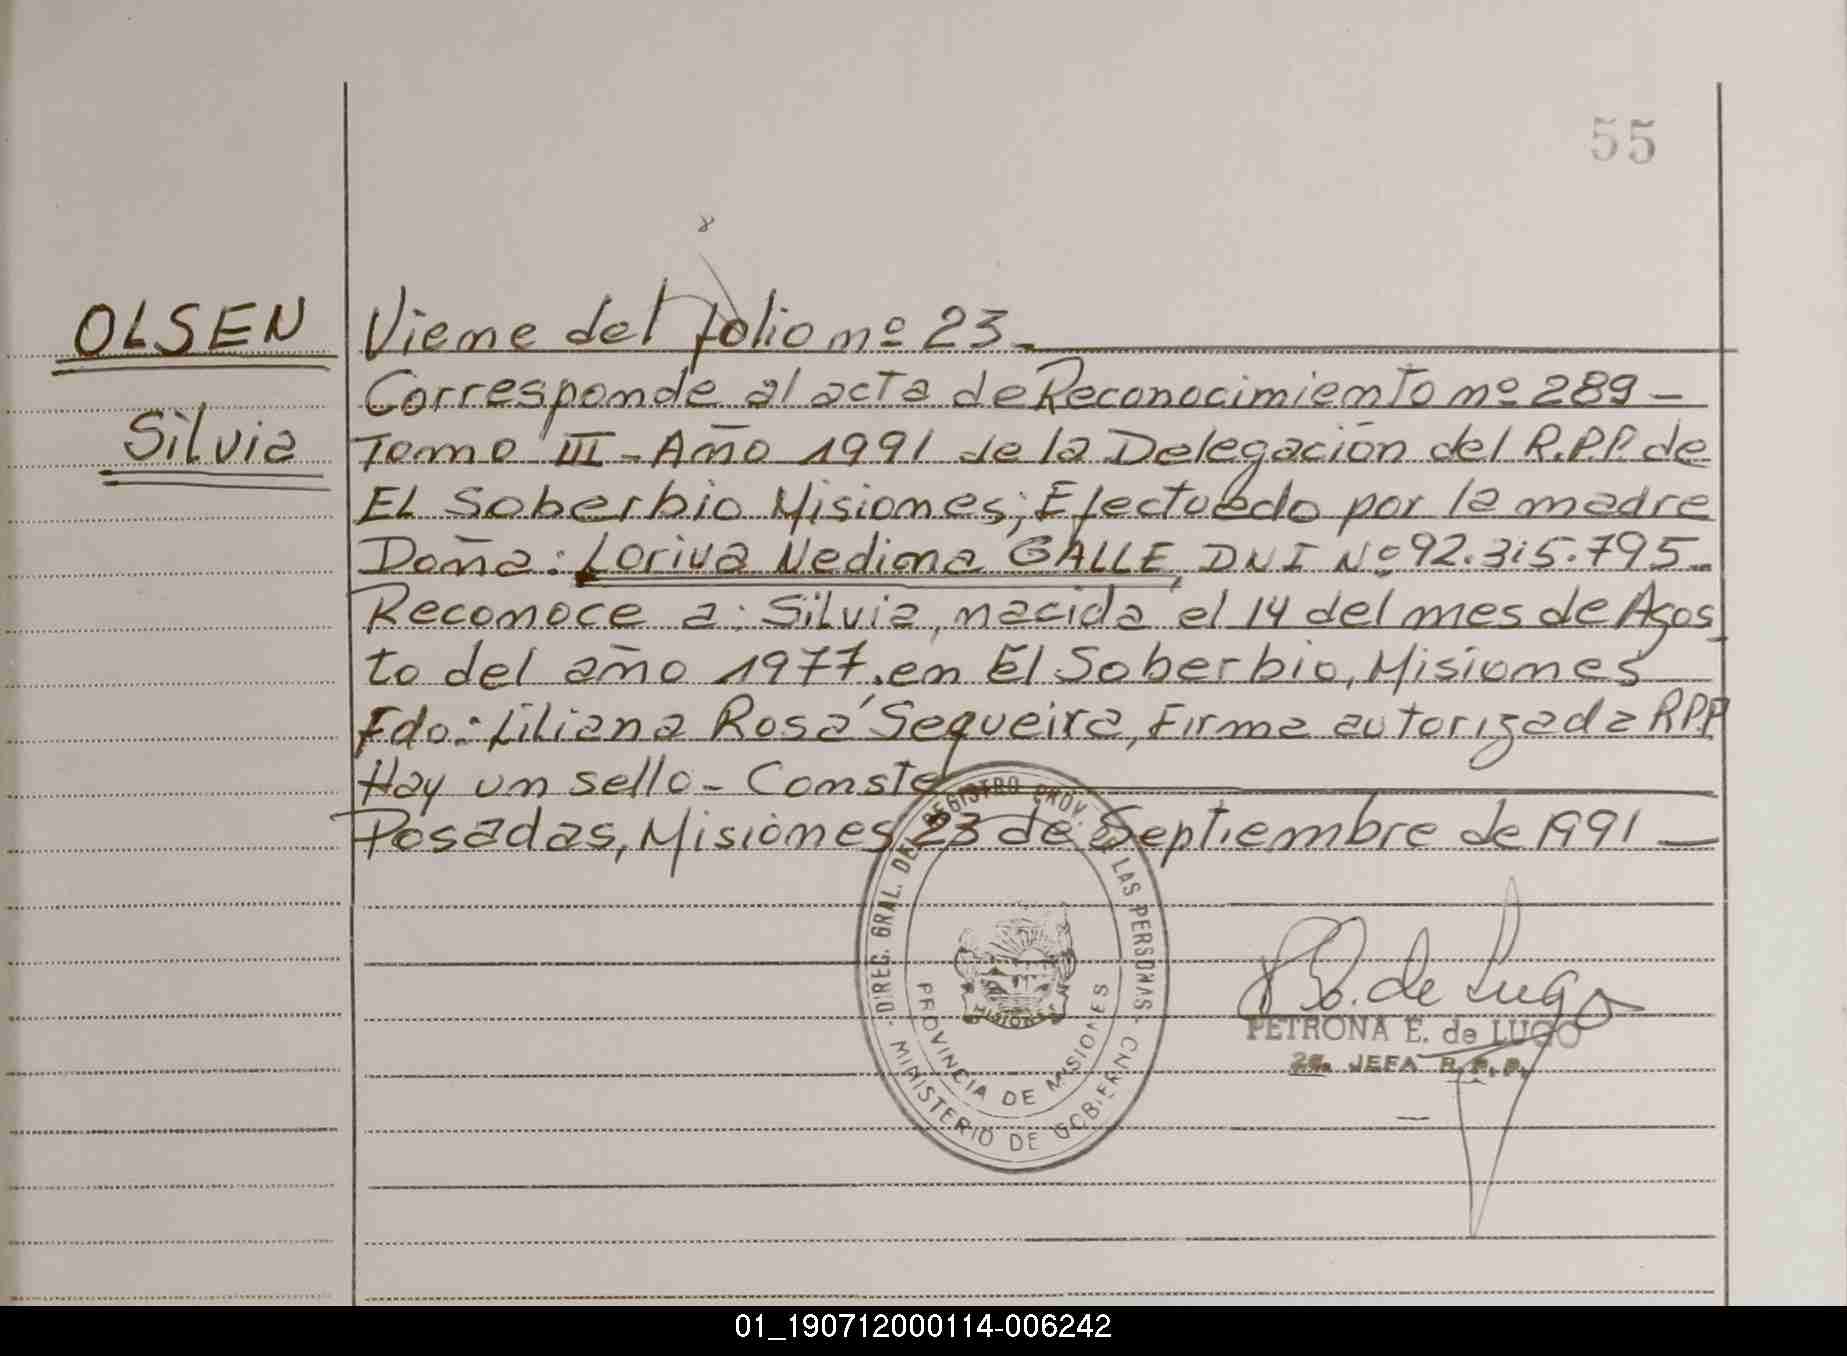 55
OLSEN
Silvia
Viene del folio nº 23.
Corresponde al acta de Reconocimiento nº 289 -
Tomo III - Año 1991 de la Delegación del R.P.P. de
El Soberbio Misiones; Efectuado por la madre
Doña: Loriva Nedina GALLE, DNI Nº 92.315.795.
Reconoce a: Silvia, nacida el 14 del mes de Agos
to del año 1977. en El Soberbio, Misiones
Fdo: Liliana Rosa Sequeira, Firma autorizada R.P.P.
Hay un sello - Conste
Posadas, Misiones 23 de Septiembre de 1991 -
DIREC. GRAL. DEL REGISTRO PROV. DE LAS PERSONAS - MINISTERIO DE GOBIERNO
PROVINCIA DE MISIONES
MISIONES
de Lugo
PETRONA E. de LUGO
2da. JEFA R.P.P.
01_190712000114-006242